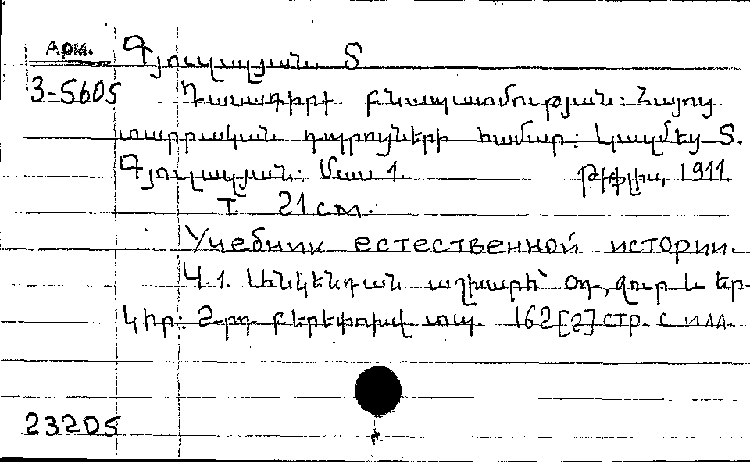 Арм. Գյուլալյան Տ
3-5605 Դասագիրք բնապատմության: Հայոց
տարրական դպրոցների համար: Կազմեց Տ.
Գյուլալյան: Մաս 1. Թիֆլիս, 1911
T. 21 см.
Учебник естественной истории.
Ч.1. Անկենդան աշխարհ՝ օդ, ջուր և եր-
կիր: 2-րդ բերեփոխվ տպ. 162[2] стр. с илл.
23205